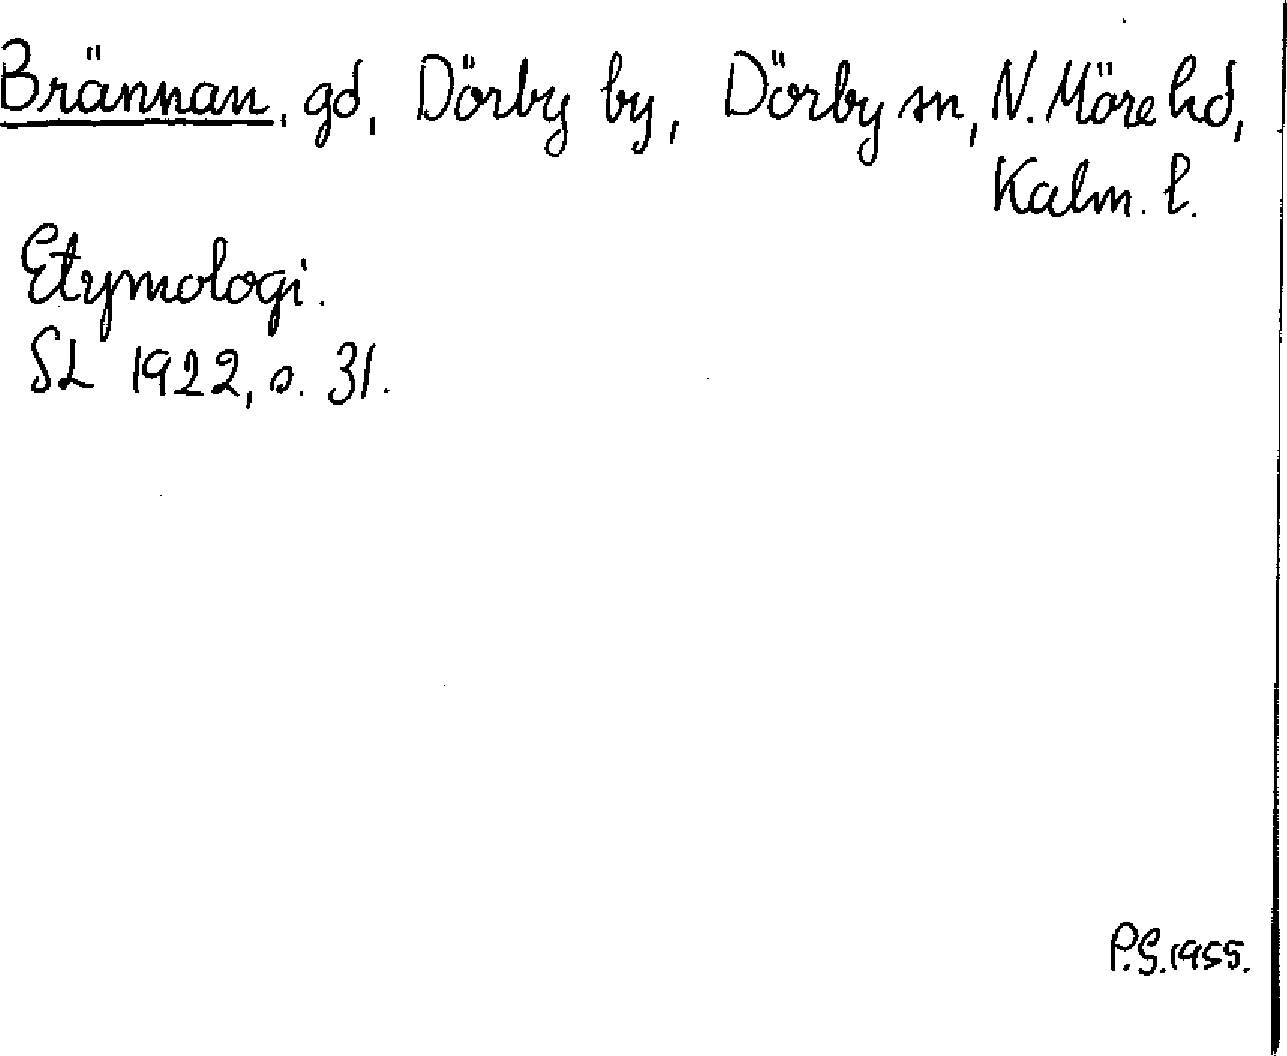 Brännan, gd, Dörby by, Dörby sn, N. Möre hd,
Kalm. l.
Etymologi.
SL 1922, s. 31.
P.G. 1955.